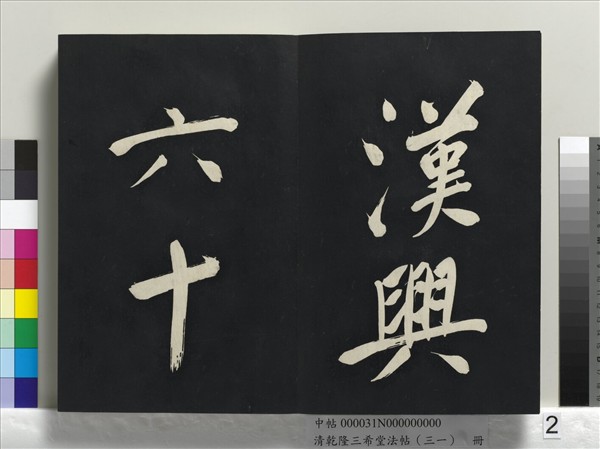 漢興
六十
中帖 000031N000000000
清乾隆三希堂法帖（三一） 冊
2